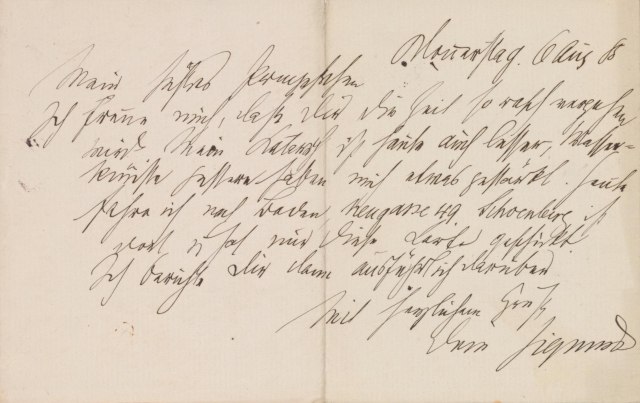 Donnerstag. 6 Aug 85
Mein süßes Prinzeßchen
Ich freue mich, daß Dir die Zeit so rasch vergehen
wird. Mein Katarrh ist heute auch besser, Wasser-
gestern haben mich etwas gestärkt. Heute
fahre ich nach Baden Rengasse 49 Schoenberg ist
dort u hat mir diese Karte geschickt.
Ich berichte Dir dann ausführlich darüber
Mit herzlichem Gruß
Dein Sigmund